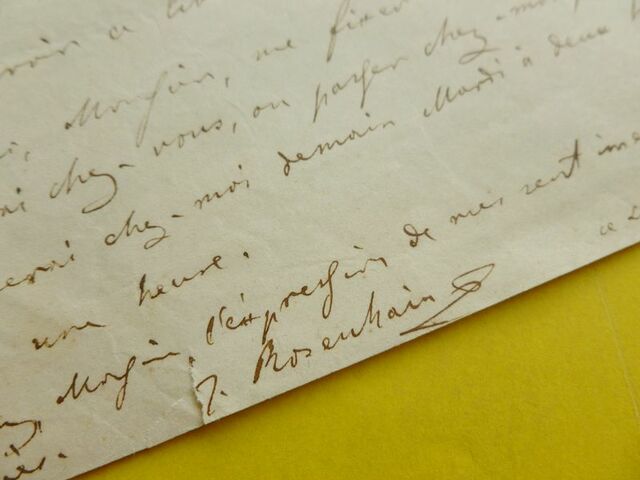 Monsieur, me fixer
chez-vous, ou passer chez-moi
chez-moi demain Mardi à deux
une heure.
Monsieur, l'expression de mes sent
ce
J. Rosenhain